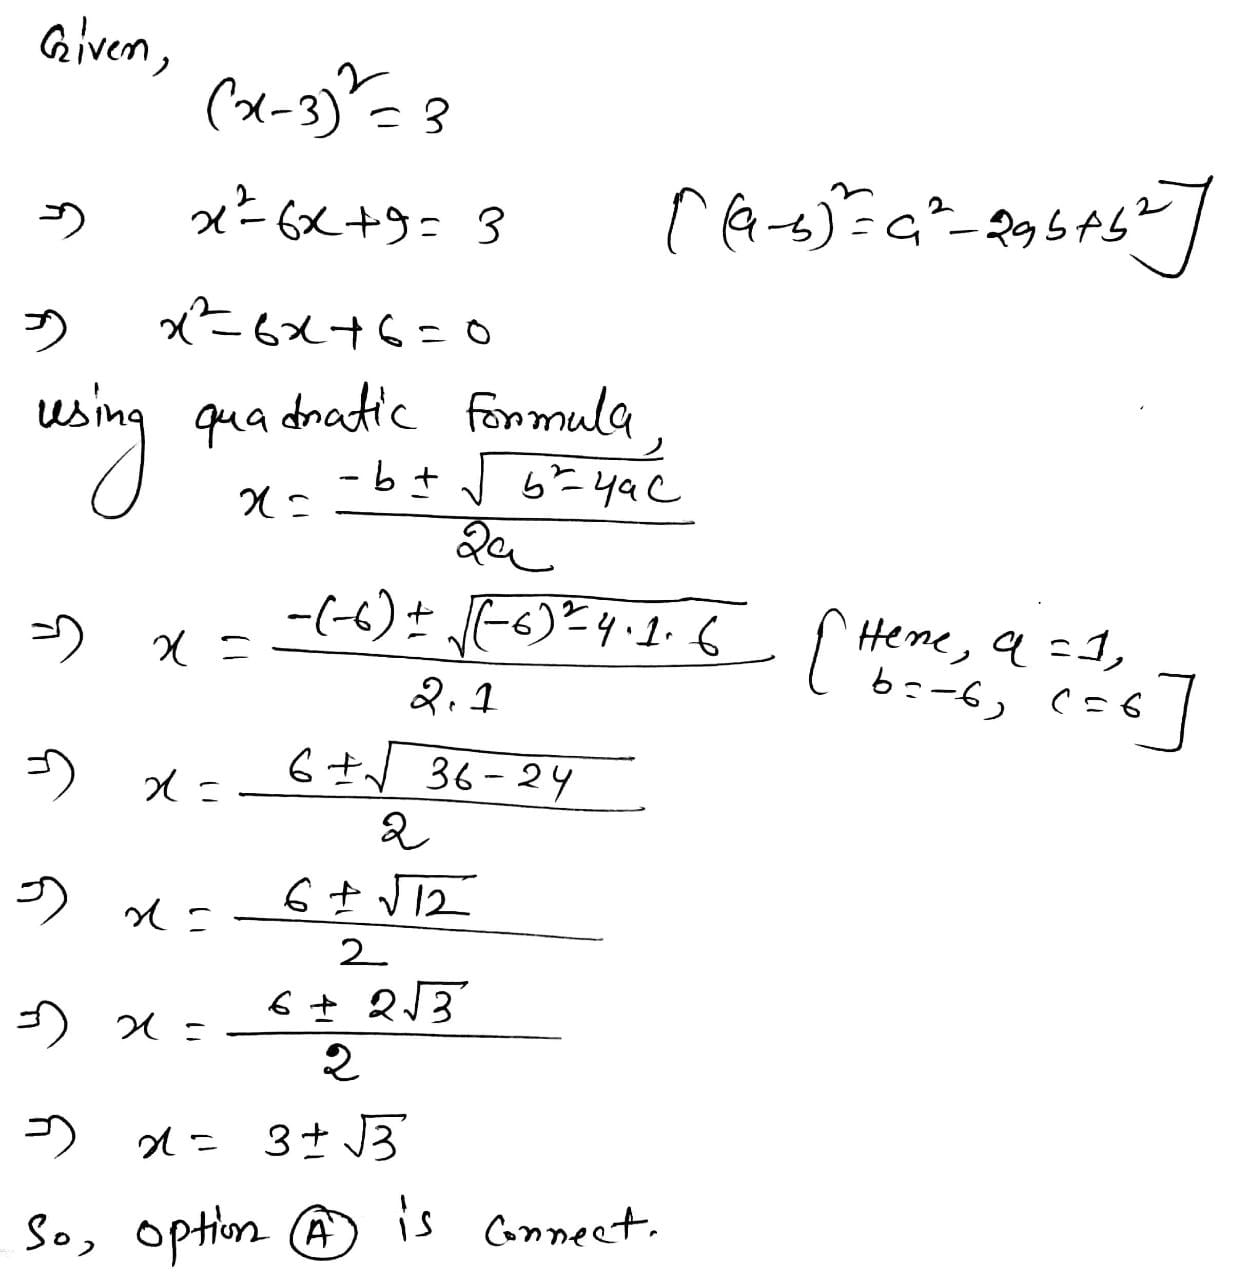 Given,
(x-3)² = 3
⇒ x²-6x+9 = 3 [(a-b)² = a²-2ab+b²]
⇒ x²-6x+6 = 0
using quadratic formula,
x = (-b ± √(b²-4ac))/2a
⇒ x = (-(-6) ± √((-6)²-4.1.6))/2.1 [Here, a = 1,
b = -6, c = 6]
⇒ x = (6 ± √(36-24))/2
⇒ x = (6 ± √12)/2
⇒ x = (6 ± 2√3)/2
⇒ x = 3 ± √3
So, option Ⓐ is correct.